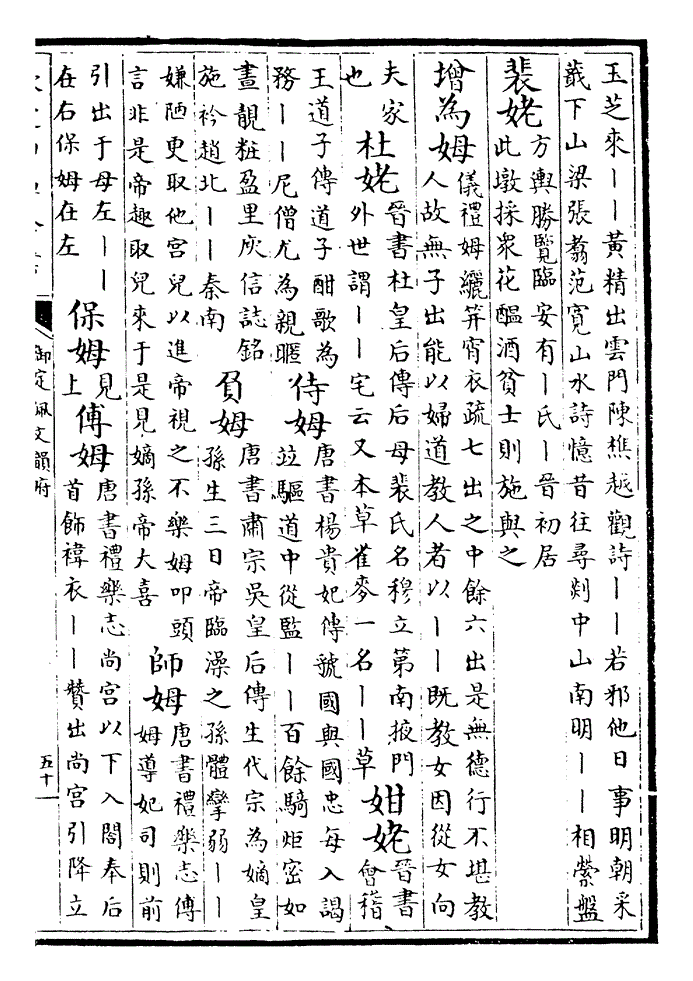 玉芝來丨丨黃精出雲門陳樵越觀詩丨丨若邪他日事明朝采
蕺下山梁張翥范寬山水詩憶昔往尋剡中山南明丨丨相縈盤
裴姥
方輿勝覽臨安有丨氏丨晉初居
此墩採衆花醖酒貧士則施與之
增為姆
儀禮姆纚笄宵衣疏七出之中餘六出是無德行不堪教
人故無子出能以婦道教人者以丨丨既教女因從女向
夫家
杜姥
晉書杜皇后傳后母裴氏名穆立第南掖門
也
外世謂丨丨宅云又本草雀麥一名丨丨草
姏姥
晉書
會稽
王道子傳道子酣歌為
務丨丨尼僧尤為親暱
侍姆
唐書楊貴妃傳虢國與國忠每入謁
竝驅道中從監丨丨百餘騎炬密如
晝靚粧盈里庾信誌銘
施衿趙北丨丨秦南
負姆
唐書肅宗吳皇后傳生代宗為嫡皇
孫生三日帝臨澡之孫體攣弱丨丨
嫌陋更取他宮兒以進帝視之不樂姆叩頭
言非是帝趣取兒來于是見嫡孫帝大喜
師姆
唐書禮樂志傅
姆導妃司則前
引出于母左丨丨
在右保姆在左
保姆
見
上
傅姆
唐書禮樂志尚宮以下入閤奉后
首飾褘衣丨丨贊出尚宮引降立
御定佩文韻府
五十